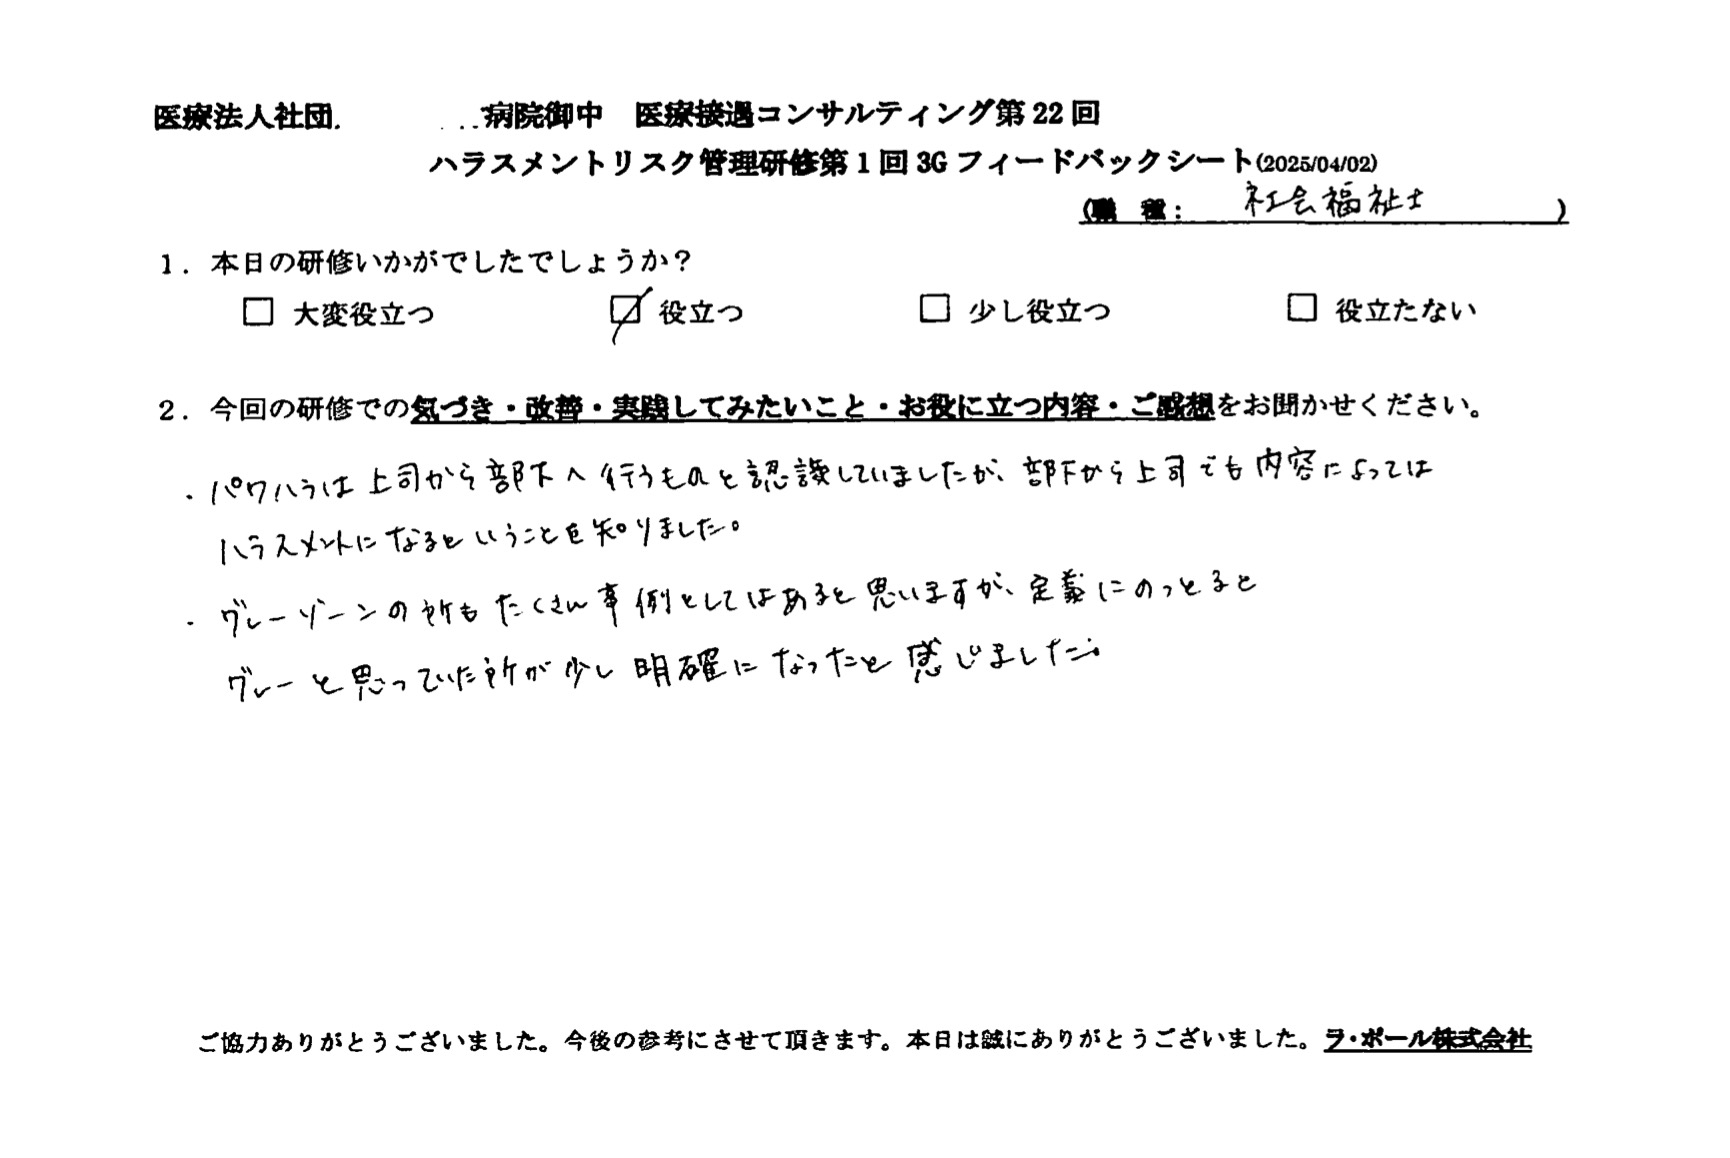 医療法人社団. ...病院御中 医療接遇コンサルティング第22回
ハラスメントリスク管理研修第1回3Gフィードバックシート(2025/04/02)
(職 種: 社会福祉士 )
1. 本日の研修いかがでしたでしょうか?
□ 大変役立つ ☑ 役立つ □ 少し役立つ □ 役立たない
2. 今回の研修での気づき・改善・実践してみたいこと・お役に立つ内容・ご感想をお聞かせください。
・パワハラは上司から部下へ行うものと認識していましたが、部下から上司でも内容によっては
ハラスメントになるということを知りました。
・グレーゾーンの所もたくさん事例としてはあると思いますが、定義にのっとると
グレーと思っていた所が少し明確になったと感じました。
ご協力ありがとうございました。今後の参考にさせて頂きます。本日は誠にありがとうございました。ラ・ポール株式会社